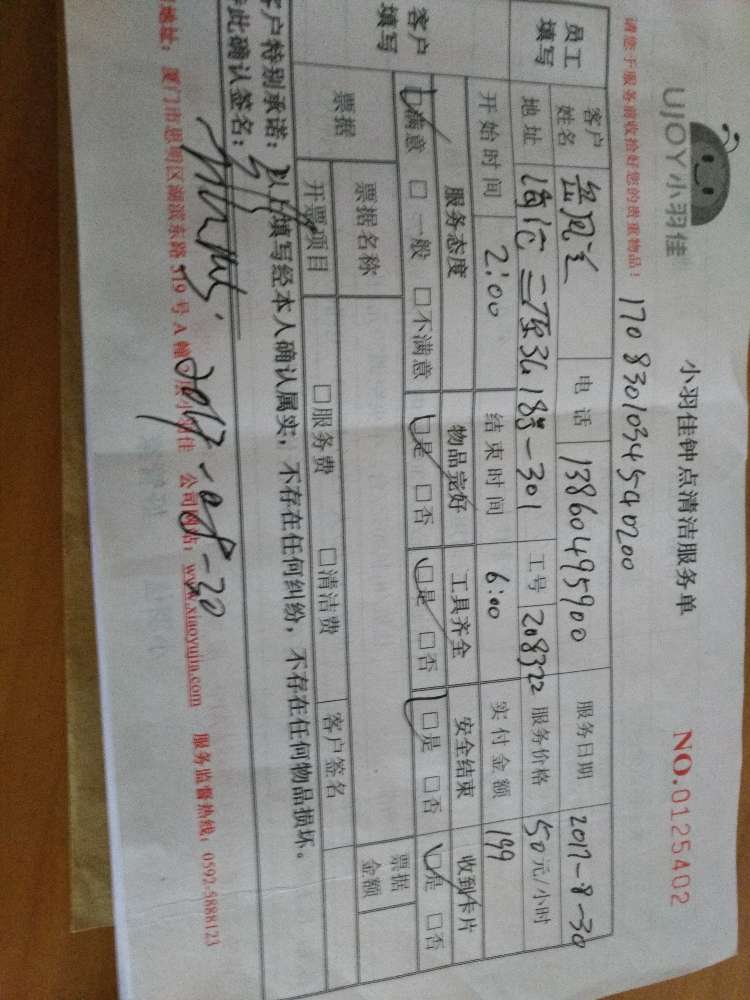 UJOY小羽佳
小羽佳钟点清洁服务单
NO.0125402
请您于服务前收拾好您的贵重物品!
1708301034540200
员工填写
客户姓名 电话 13860495900 服务日期 2017-8-30
地址 301 工号 208322 服务价格 50元/小时
开始时间 2:00 结束时间 6:00 实付金额 199
客户填写
服务态度 物品完好 工具齐全 安全结束 收到卡片
□满意 □一般 □不满意 □是 □否 □是 □否 □是 □否 □是 □否
票据 票据名称 票据金额
开票项目 □服务费 □清洁费 客户签名
客户特别承诺:以上填写经本人确认属实,不存在任何纠纷,不存在任何物品损坏。
特此确认签名:
2017-08-30
地址:厦门市思明区湖滨东路319号A幢 层小羽佳 公司网站:www.xiaoyujia.com 服务监督热线:0592-5888123